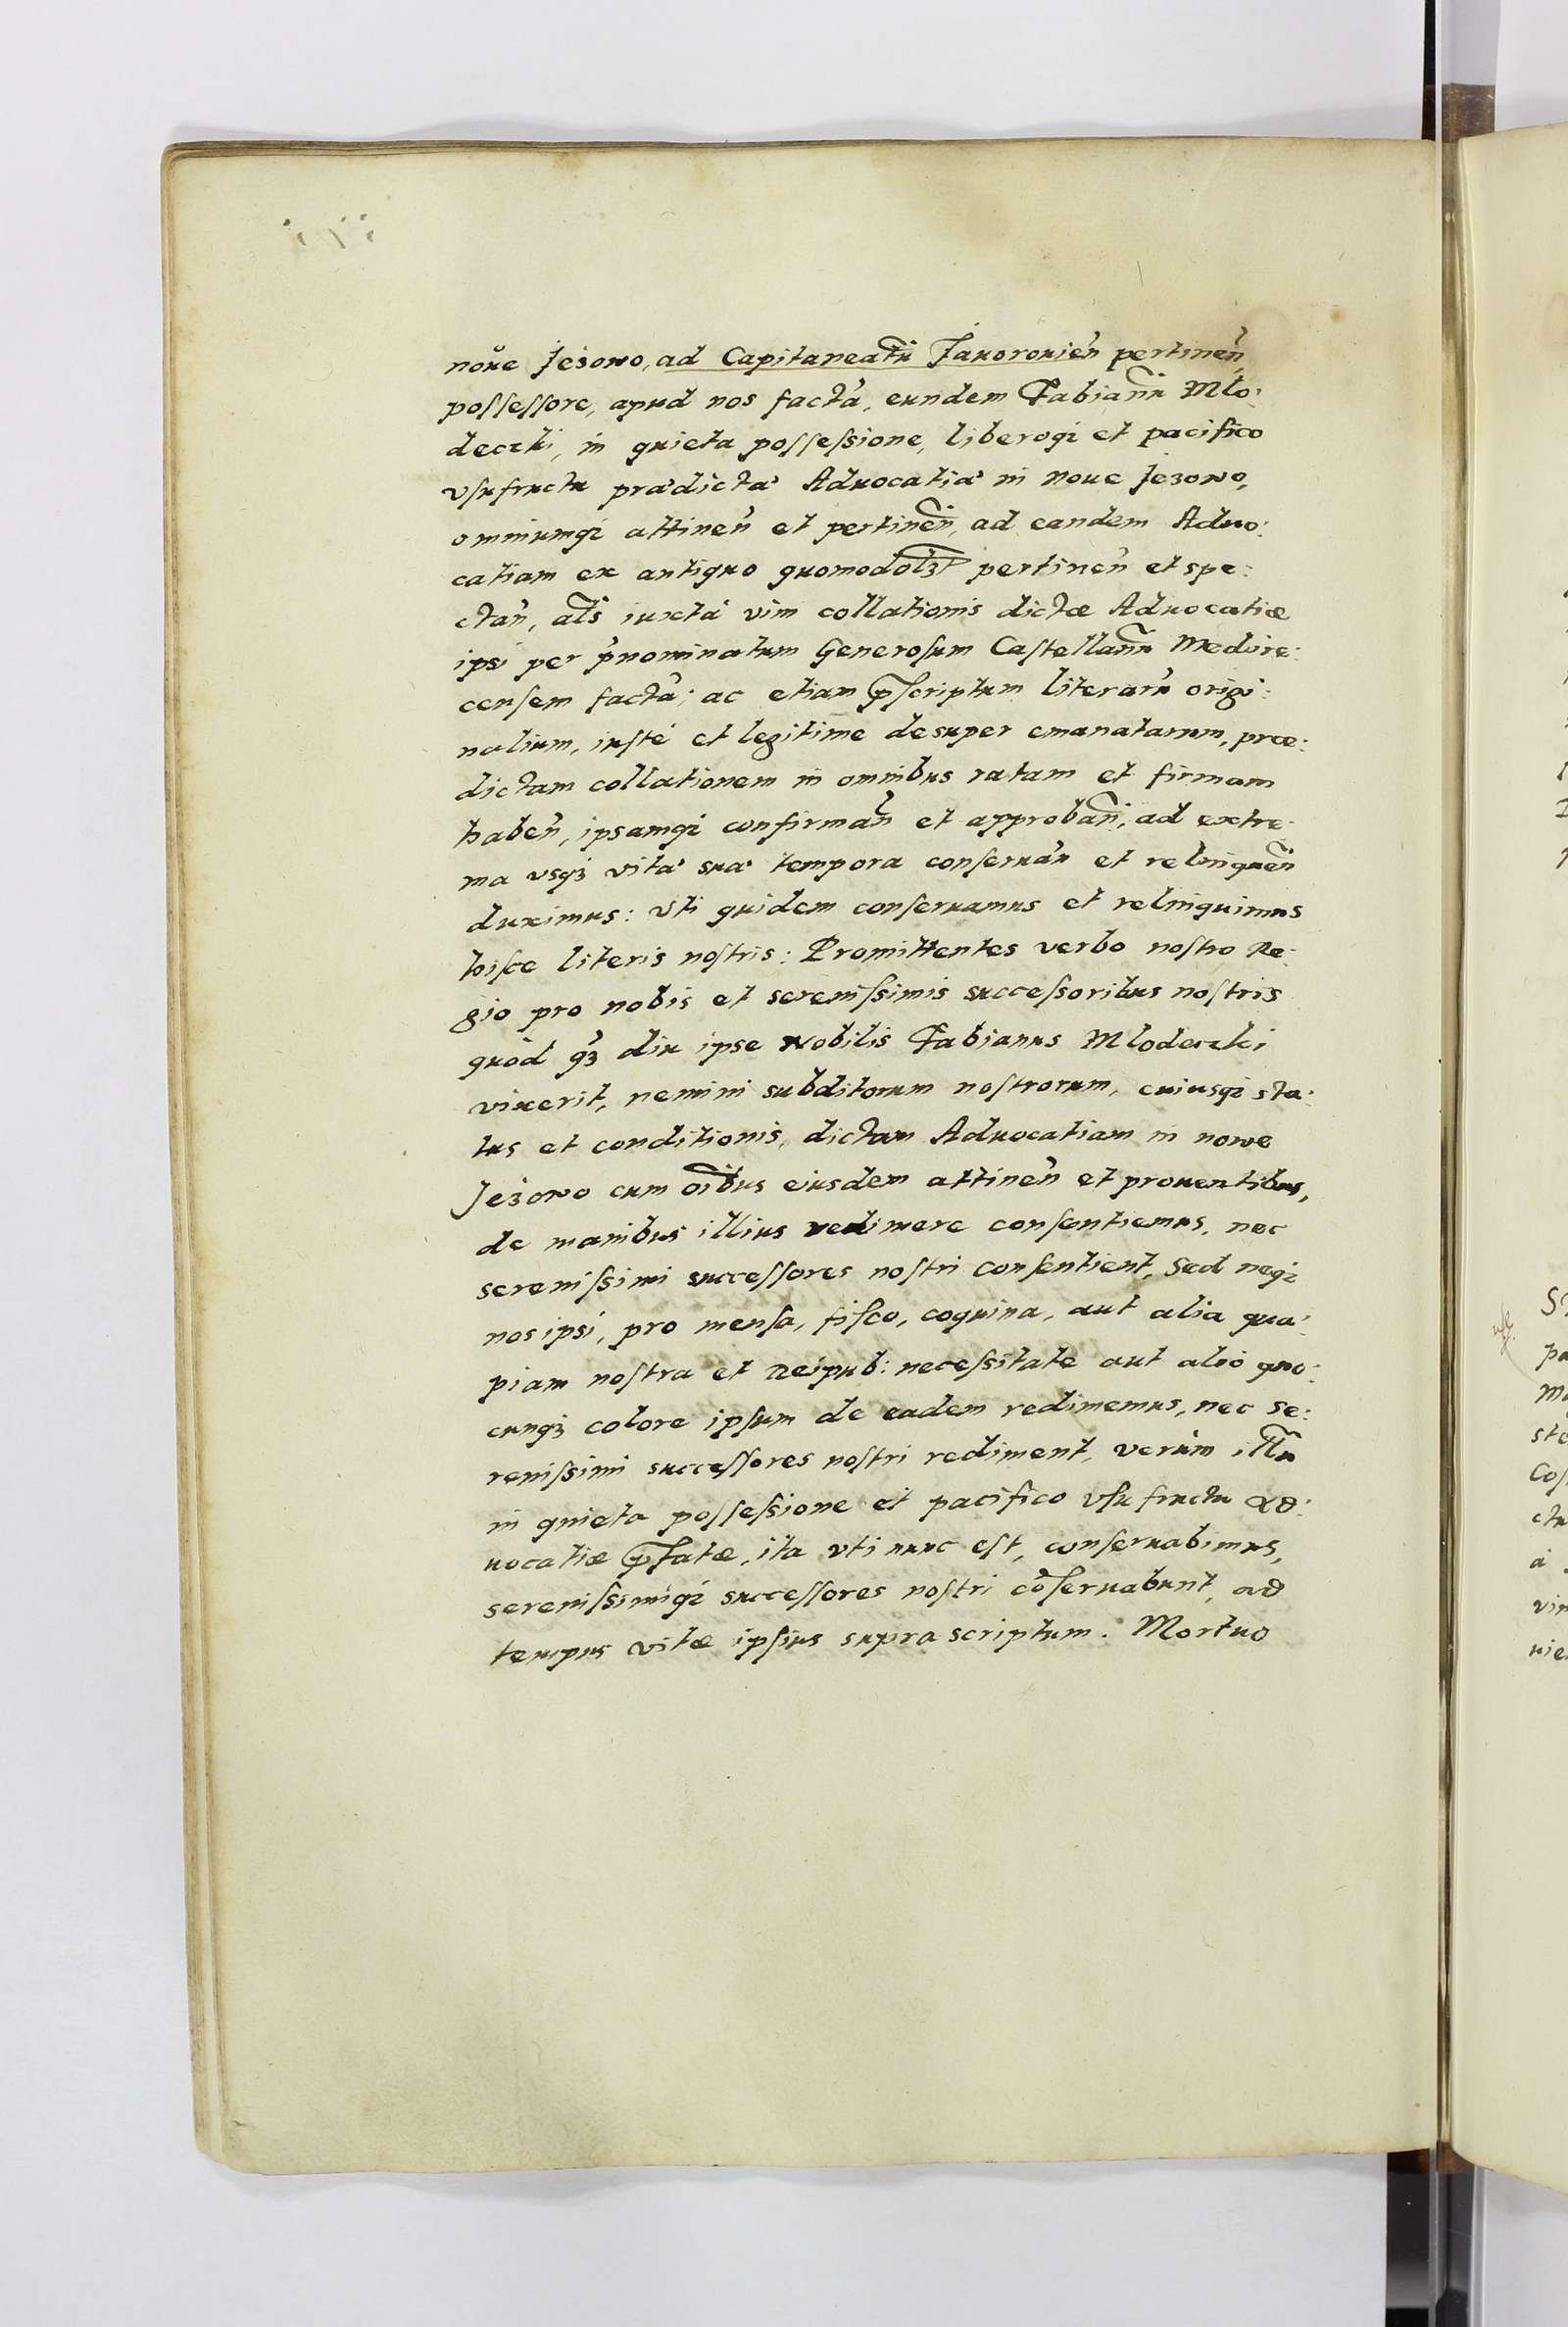 noue Jezowo, ad Capitaneatũ Jauorouień pertineń,
possessore, apud nos facta, eundem Fabianũ Mlo:
deczki, in quieta possessione, liberoq; et pacifico
vsufructu prædictæ Aduocatiæ in noue Jezowo,
omniumq; attineń et pertineń, ad eandem Aduo:
catiam ex antiquo quomodolꝫt pertineń et spe:
ctań, als iuxta vim collationis dictæ Aduocatiæ
ipsi per p̃nominatum Generosum Castellanũ
censem facta; ac etiam p̃scriptum literarũ origi:
nalium, iuste et legitime desuper emanatarum, præ:
dictam collationem in omnibus ratam et firmam
habeń, ipsamq; confirmań et approbań, ad extre:
ma vsqꝫ vitæ suæ tempora conseruań et relinqueń
duximus: vti quidem conseruamus et relinquimus
hisce literis nostris: Promittentes verbo nostro Re:
gio pro nobis et serenissimis successoribus nostris
quòd qꝫ diu ipse Nobilis Fabianus Mlodeczki
vixerit, nemini subditorum nostrorum, cuiusq; sta:
tus et conditionis, dictam Aduocatiam in nowe
Jezowo cum oĩbus eiusdem attineń et prouentibus,
de manibus illius redimere consentiemus, nec
serenissimi successores nostri consentient, Sed neq;
nos ipsi, pro mensa, fisco, coquina, aut alia qua:
piam nostra et Reipub: necessitate aut alio quo:
cunqꝫ colore ipsum de eadem redimemus, nec se:
renissimi successores nostri rediment, verùm illũ
in quieta possessione et pacifico vsufructu ad:
uocatiæ p̃fatæ, ita vti nunc est, conseruabimus,
serenissimiq; successores nostri cõseruabunt, ad
tempus vitæ ipsius suprascriptum. Mortuo